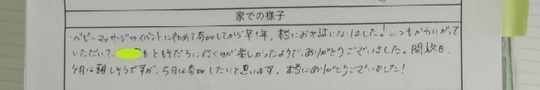 家での様子
・ベビーマッサージのイベントに初めて参加してから早1年、本当にお世話になりました！いつもかわいがって
いただいて、 もともだちに行くのが楽しかったようで、ありがとうございました。開放日、
4月は難しそうですが、5月は参加したいと思います。本当にありがとうございました！